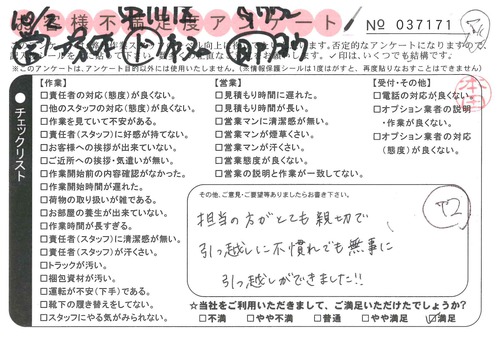 お客様不満足度アンケート
No 037171
※このアンケートは、アンケート目的以外には使用いたしません。(※情報保護シールは1度はがすと、再度貼りなおすことはできません)
チェックリスト
【作業】
□責任者の対応(態度)が良くない。
□他のスタッフの対応(態度)が良くない。
□作業を見ていて不安がある。
□責任者(スタッフ)に好感が持てない。
□お客様への挨拶が出来ていない。
□ご近所への挨拶・気遣いが無い。
□作業開始前の内容確認がなかった。
□作業開始時間が遅れた。
□荷物の取り扱いが雑である。
□お部屋の養生が出来ていない。
□作業時間が長すぎる。
□責任者(スタッフ)に清潔感が無い。
□責任者(スタッフ)が汗くさい。
□トラックが汚い。
□梱包資材が汚い。
□運転が不安(下手)である。
□靴下の履き替えをしてない。
□スタッフにやる気がみられない。
【営業】
□見積もり時間に遅れた。
□見積もり時間が長い。
□営業マンに清潔感が無い。
□営業マンが煙草くさい。
□営業マンが汗くさい。
□営業態度が良くない。
□営業の説明と作業が一致してない。
【受付・その他】
□電話の対応が良くない。
□オプション業者の説明
・作業が良くない。
□オプション業者の対応
(態度)が良くない。
その他、ご意見・ご要望等ありましたらお書き下さい。
担当の方がとても親切で
引っ越しに不慣れでも無事に
引っ越しができました!!
72
☆当社をご利用いただきまして、ご満足いただけたでしょうか?
□不満 □やや不満 □普通 □やや満足 ☑満足